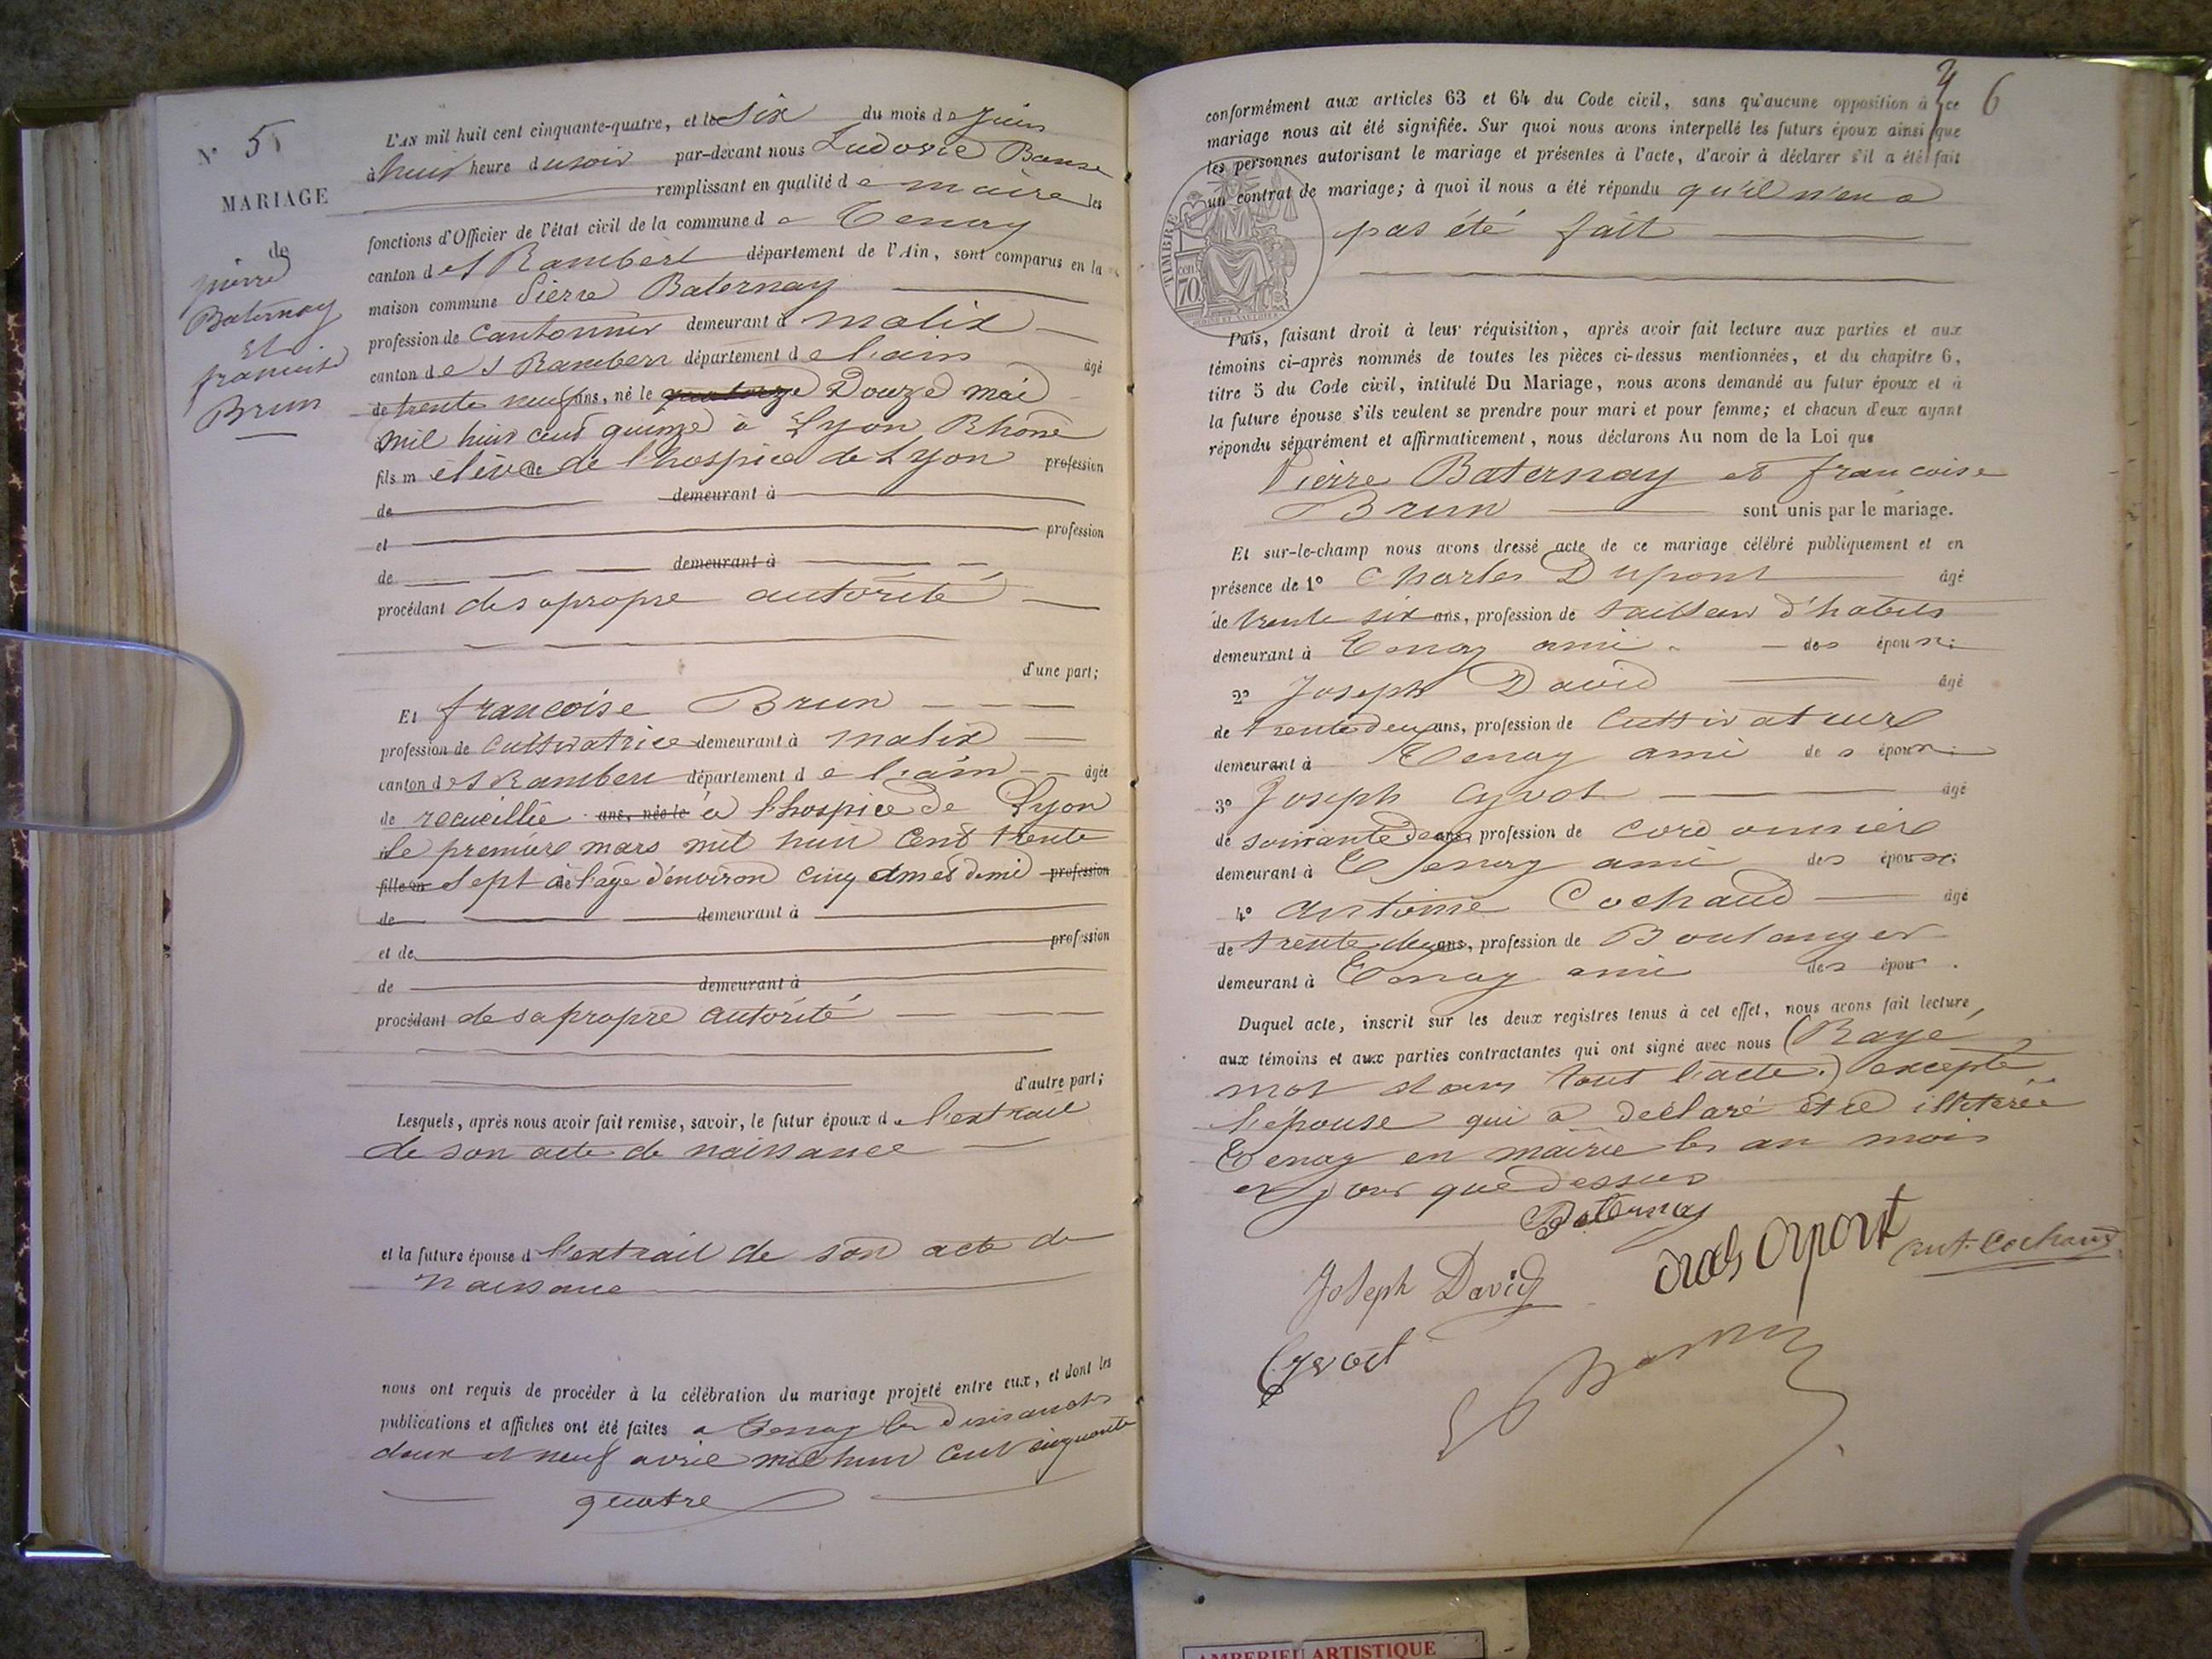 N° 5
MARIAGE
de
pierre
Baternay
et
francoise
Brun
L'AN mil huit cent cinquante-quatre, et le six du mois de juin
à huit heure du soir par-devant nous Ludovic
remplissant en qualité de maire les
fonctions d'Officier de l'état civil de la commune de Tenay
canton de St Rambert département de l'Ain, sont comparus en la
maison commune Pierre Baternay
profession de cantonnier demeurant à malix
canton de St Rambert département de l'ain âgé
de trente neuf ans, né le quatorze Douze mai
mil huit cent quinze à Lyon Rhône
fils m élève de l'hospice de Lyon profession
de demeurant à
et profession
de demeurant à
procédant de sa propre autorité
d'une part;
Et francoise Brun
profession de cultivatrice demeurant à malix
canton de St Rambert département de l'ain âgée
de recueillie ans, née le à l'hospice de Lyon
le premier mars mil huit cent trente
fille m sept à l'age d'environ cinq ans et demi profession
de demeurant à
et de profession
de demeurant à
procédant de sa propre autorité
d'autre part;
Lesquels, après nous avoir fait remise, savoir, le futur époux de l'extrait
de son acte de naissance
et la future épouse d l'extrait de son acte de
naissance
nous ont requis de procéder à la célébration du mariage projeté entre eux, et dont les
publications et affiches ont été faites a Tenay les dimanches
deux et neuf avril mil huit cent cinquante
quatre
6
conformément aux articles 63 et 64 du Code civil, sans qu'aucune opposition à ce
mariage nous ait été signifiée. Sur quoi nous avons interpellé les futurs époux ainsi que
les personnes autorisant le mariage et présentes à l'acte, d'avoir à déclarer s'il a été fait
un contrat de mariage; à quoi il nous a été répondu qu'il n'en a
pas été fait
TIMBRE
cen
70
Puis, faisant droit à leur réquisition, après avoir fait lecture aux parties et aux
témoins ci-après nommés de toutes les pièces ci-dessus mentionnées, et du chapitre 6,
titre 5 du Code civil, intitulé Du Mariage, nous avons demandé au futur époux et à
la future épouse s'ils veulent se prendre pour mari et pour femme; et chacun d'eux ayant
répondu séparément et affirmativement, nous déclarons Au nom de la Loi que
Pierre Baternay et francoise
Brun sont unis par le mariage.
Et sur-le-champ nous avons dressé acte de ce mariage célébré publiquement et en
présence de 1° Charles Dupont âgé
de trente six ans, profession de tailleur d'habits
demeurant à Tenay ami des époux;
2° Joseph David âgé
de trente deux ans, profession de cultivateur
demeurant à Tenay ami des époux;
3° Joseph Cyvoct âgé
de soixante deux ans, profession de cordonnier
demeurant à Tenay ami des époux;
4° antoine Cochaud âgé
de trente deux ans, profession de Boulanger
demeurant à Tenay ami des époux.
Duquel acte, inscrit sur les deux registres tenus à cet effet, nous avons fait lecture
aux témoins et aux parties contractantes qui ont signé avec nous (Rayé
mot dans tout l'acte.) excepté
l'épouse qui a déclaré être illeterée
Tenay en mairie les an mois
et jour que dessus
Baternay
Joseph David
ant. Cochaud
Cyvoct
AMBERIEU ARTISTIQUE